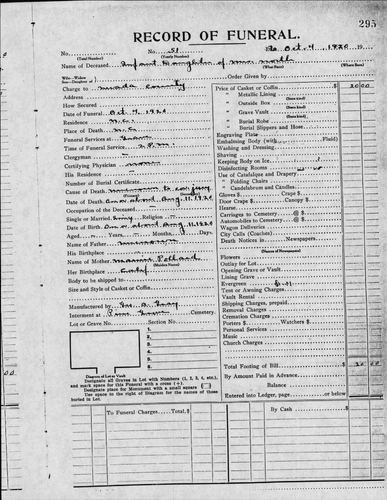 295
RECORD OF FUNERAL.
No.
No. 51
Oct. 4 1920 19
(Total Number)
(Yearly Number)
(Date)
Name of Deceased Infant Daughter of
(What Name)
(Where Born)
Order Given by
Charge to Nevada County
Address
How Secured
Date of Funeral Oct 4 1920
Residence N.C.
Place of Death N.C.
Funeral Services at Grave
Time of Funeral Service 2 P.M.
Clergyman
Certifying Physician none
His Residence
Number of Burial Certificate
Cause of Death unknown to cor jury
Date of Death On or about Aug. 11, 1920
Occupation of the Deceased
Single or Married Religion
Date of Birth On or about Aug. 11 1920
Aged Years, Months, Days.
Name of Father unknown
His Birthplace
Name of Mother Pollard
(Maiden Name)
Her Birthplace Calif
Body to be shipped to
Size and Style of Casket or Coffin
Manufactured by Geo. A. Gray
Interment at Pine Grove Cemetery.
Lot or Grave No. Section No.
1
2
3
4
5
6
Diagram of Lot or Vault
Designate all Graves in Lot with Numbers (1, 2, 3, 4, etc.),
and mark space for this Funeral with a cross (+).
Designate place for Monument with a small square (□)
Use space to the right of Diagram for the names of those
buried in Lot.
Price of Casket or Coffin 20 00
" Metallic Lining
" Outside Box
" Grave Vault
" Burial Robe
" Burial Slippers and Hose
Engraving Plate
Embalming Body (with Fluid)
Washing and Dressing
Shaving
Keeping Body on Ice
Disinfecting Rooms
Use of Catafalque and Drapery
" Folding Chairs
" Candelabrum and Candles
Gloves $ Crape $
Door Crape $ Canopy $
Hearse
Carriages to Cemetery @ $
Automobiles to Cemetery @ $
Wagon Deliveries
City Calls (Coaches)
Death Notices in Newspapers
Flowers
Outlay for Lot
Opening Grave or Vault
Lining Grave
Evergreen
Tent or Awning Charges
Vault Rental
Shipping Charges, prepaid
Removal Charges
Cremation Charges
Porters $ Watchers $
Personal Services
Music
Church Charges
Total Footing of Bill $ 20 00
By Amount Paid in Advance
Balance
Entered into Ledger, page or below
To Funeral Charges Total, $
By Cash $